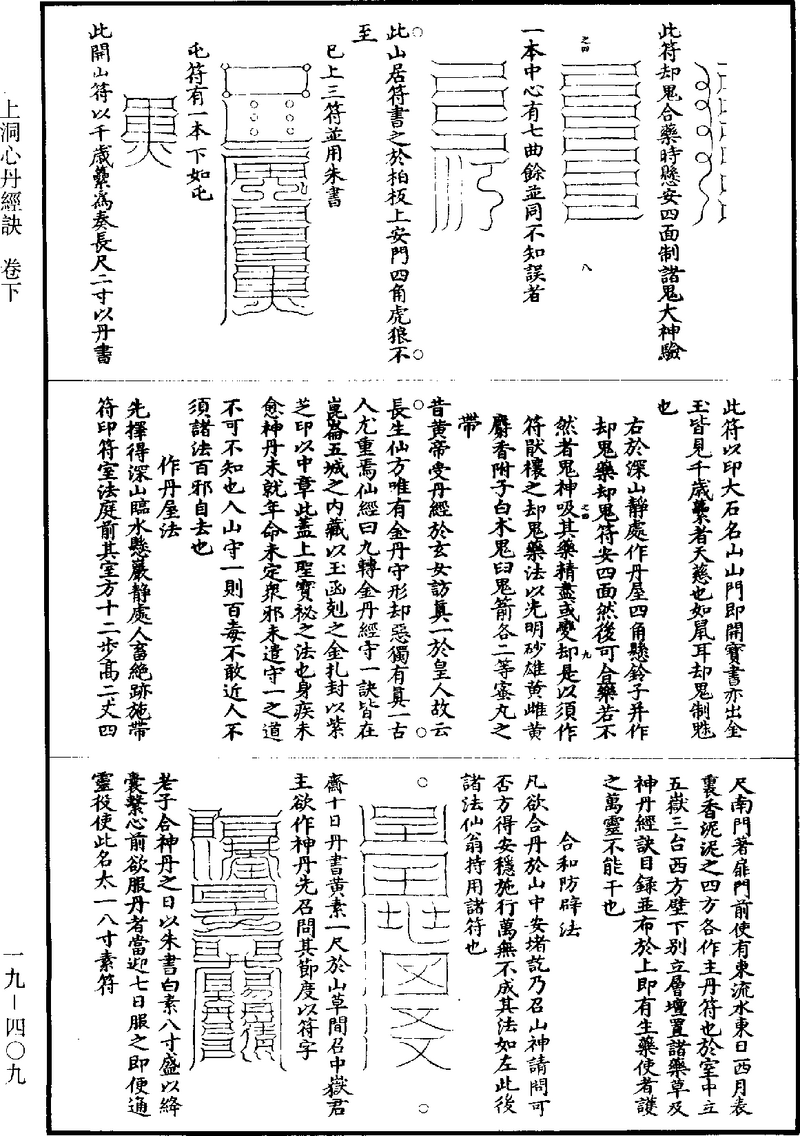 此符却鬼合藥時懸安四面制諸鬼大神驗
之四
八
一本中心有七曲餘並同不知誤者
此山居符書之於柏板上安門四角虎狼不
至
已上三符並用朱書
屯符有一本下如屯
此開山符以千歲蘽為奏長尺二寸以丹書
此符以印大石名山山門即開寶書亦出金
玉皆見千歲蘽者天慈也如鼠耳却鬼制魅
也
右於深山靜處作丹屋四角懸鈴子并作
却鬼藥却鬼符安四面然後可合藥若不
然者鬼神吸其藥精盡或變却是以須作
之四
九
符猒禳之却鬼藥法以光明砂雄黃雌黃
麝香附子白木鬼臼鬼箭各二等蜜丸之
帶
昔黃帝受丹經於玄女訪真一於皇人故云
長生仙方唯有金丹守形却惡獨有真一古
人尤重焉仙經曰九轉金丹經守一訣皆在
崑崙五城之內藏以玉函刻之金札封以紫
芝印以中章此蓋上聖寶祕之法也身疾未
愈神丹未就年命未定衆邪未遣守一之道
不可不知也入山守一則百毒不敢近人不
須諸法百邪自去也
作丹屋法
先擇得深山臨水懸巖靜處人畜絕跡施帶
符印符室法庭前其室方十二步高二丈四
尺南門著扉門前使有東流水東日西月表
裏香泥泥之四方各作主丹符也於室中立
五嶽三台西方壁下別立層壇置諸藥草及
神丹經訣目録並布於上即有生藥使者護
之萬靈不能干也
合和防辟法
凡欲合丹於山中安堵訖乃召山神請問可
否方得安穩施行萬無不成其法如左此後
諸法仙翁持用諸符也
齋十日丹書黃素一尺於山草間召中嶽君
主欲作神丹先召問其節度以符字
老子合神丹之日以朱書白素八寸盛以絳
囊繫心前欲服丹者當迎七日服之即便通
靈役使此名太一八寸素符
上洞心丹經訣 卷下
一九－四〇九